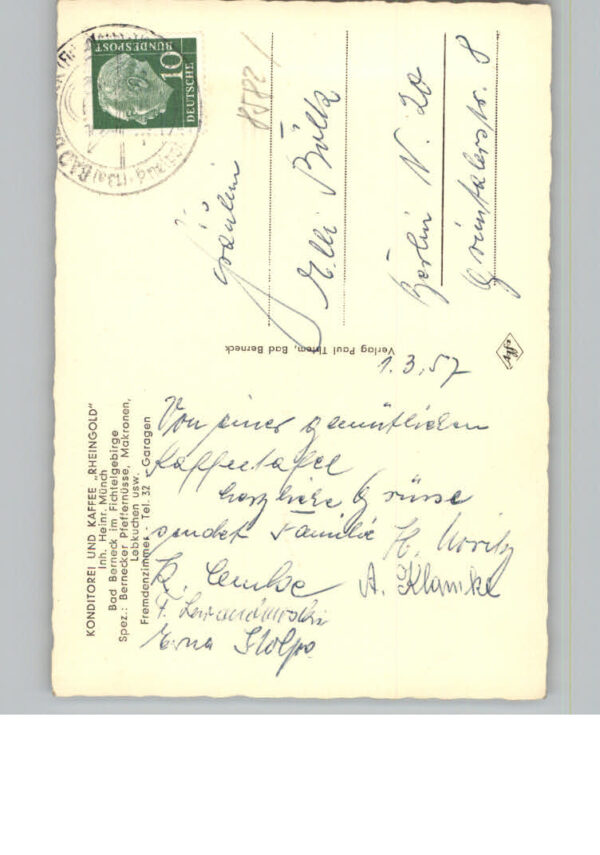 KONDITOREI UND KAFFEE „RHEINGOLD"
Inh. Heinr. Münch
Bad Berneck im Fichtelgebirge
Spez.: Bernecker Pfeffernüsse, Makronen,
Lebkuchen usw.
Fremdenzimmer - Tel. 32 - Garagen
1.3.57
Von einer gemütlichen
Kaffeetafel
herzliche Grüsse
sendet Familie H. Moritz
K. Lemke A. Klamke
F. Lewandowski
Erna Stolpe
Verlag Paul Thiem, Bad Berneck
DEUTSCHE
BUNDESPOST
10
BAD
(13a)
Fräulein
Elli Bültz
Berlin N. 20
Grüntalerstr. 8